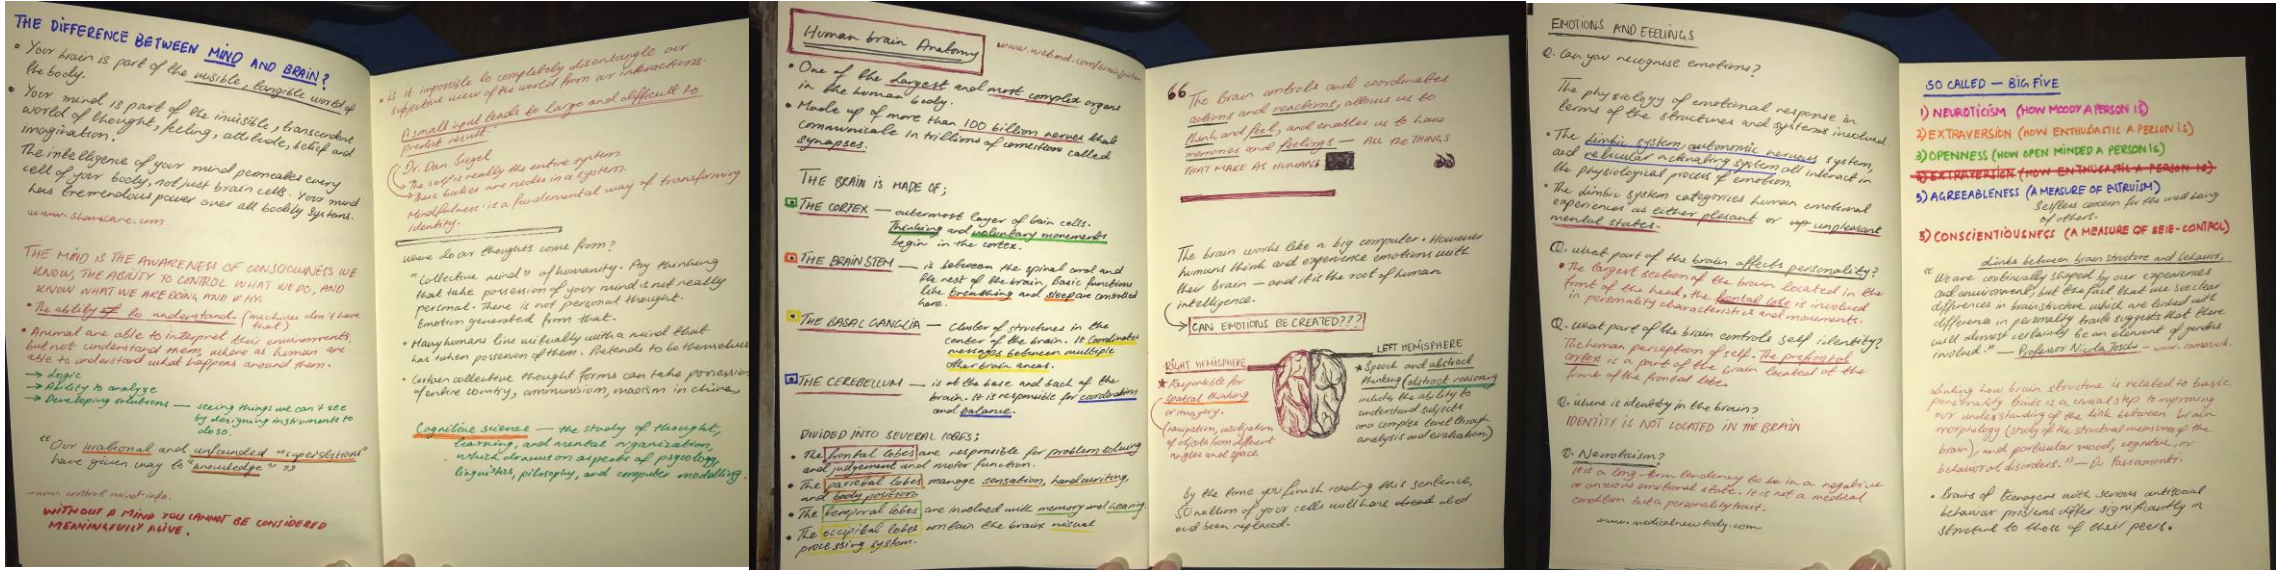 THE DIFFERENCE BETWEEN MIND AND BRAIN?
• Your brain is part of the visible, tangible world of
the body.
• Your mind is part of the invisible, transcendent
world of thought, feeling, attitude, belief and
imagination.
The intelligence of your mind permeates every
cell of your body, not just brain cells. Your mind
has tremendous power over all bodily systems.
THE MIND IS THE AWARENESS OF CONSCIOUSNESS WE
KNOW, THE ABILITY TO CONTROL WHAT WE DO, AND
KNOW WHAT WE ARE DOING AND WHY.
• The ability to understand. (machines don't have
that)
• Animal are able to interpret their environments,
but not understand them, where as human are
able to understand what happens around them.
→ Logic
→ Ability to analyze
→ Developing solutions — seeing things we can't see
by designing instruments to
do so.
"Our irrational and unfounded "superstitions"
have given way to "knowledge""
WITHOUT A MIND YOU CANNOT BE CONSIDERED
MEANINGFULLY ALIVE.
• is it impossible to completely disentangle our
subjective view of the world from our interactions.
A small input leads to large and difficult to
predict result.
Dr. Dan Siegel
The self is really the entire system
these bodies are nodes in a system.
Mindfulness is a fundamental way of transforming
identity.
Where do our thoughts come from?
"Collective mind" of humanity. Any thinking
that take possession of your mind is not really
personal. There is not personal thought.
Emotion generated from that.
• Many humans live virtually with a mind that
has taken possession of them. Pretends to be themselves
• Certain collective thought forms can take possession
of entire country, communism, maoism in china,
Cognitive science — the study of thought,
learning, and mental organization,
which draws on aspects of
linguistics, and computer modelling.
Human brain Anatomy
• One of the largest and most complex organs
in the human body.
• Made up of more than 100 billion nerves that
communicate in trillions of connections called
synapses.
THE BRAIN IS MADE OF;
THE CORTEX — outermost layer of brain cells.
Thinking and voluntary movements
begin in the cortex.
THE BRAIN STEM — is between the spinal cord and
the rest of the brain, basic functions
like breathing and sleep are controlled
here.
THE BASAL GANGLIA — Cluster of structures in the
center of the brain. It coordinates
messages between multiple
other brain areas.
THE CEREBELLUM — is at the base and back of the
brain. It is responsible for coordination
and balance.
DIVIDED INTO SEVERAL LOBES;
• The frontal lobes are responsible for problem solving
and judgement and motor function.
• The parietal lobes manage sensation, handwriting,
and body position.
• The temporal lobes are involved with memory and hearing.
• The occipital lobes contain the brain's visual
processing system.
"The Brain controls and coordinates
actions and reactions, allows us to
think and feel, and enables us to have
memories and feelings — ALL THE THINGS
THAT MAKE AS HUMANS"
The brain works like a big computer. However
humans think and experience emotions with
their brain — and it is the root of human
intelligence.
→ CAN EMOTIONS BE CREATED???
RIGHT HEMISPHERE
★ Responsible for
spatial thinking
or imagery.
of objects from different
angles and space
LEFT HEMISPHERE
★ Speech and abstract
thinking (abstract reasoning
includes the ability to
understand subjects
on a complex level through
analysis and evaluation)
By the time you finish reading this sentence,
50 million of your cells will have died
and been replaced.
EMOTIONS AND FEELINGS
Q. Can you recognise emotions?
The physiology of emotional response in
terms of the structures and systems involved
• The limbic system, autonomic nervous system,
and reticular activating system all interact in
the physiological process of emotion.
• The limbic system categories human emotional
experiences as either plesant or unpleasant
mental states.
Q. What part of the brain affects personality?
• The largest section of the brain located in the
front of the head, the frontal lobe is involved
in personality characteristics and movements.
Q. What part of the brain controls self identity?
The human perception of self. The prefrontal
cortex is a part of the brain located at the
front of the frontal lobe.
Q. Where is identity in the brain?
IDENTITY IS NOT LOCATED IN THE BRAIN
Q. Neuroticism?
It is a long-term tendency to be in a negative
or anxious emotional state. It is not a medical
condition but a personality trait.
SO CALLED — BIG FIVE
1) NEUROTICISM (HOW MOODY A PERSON IS)
2) EXTRAVERSION (HOW ENTHUSIASTIC A PERSON IS)
3) OPENNESS (HOW OPEN MINDED A PERSON IS)
EXTRAVERSION (HOW ENTHUSIASTIC A PERSON IS)
5) AGREEABLENESS (A MEASURE OF
Selfless concern for the well being
of others.
5) CONSCIENTIOUSNESS (A MEASURE OF SELF-CONTROL)
Links between brain structure and behavior,
"We are continually shaped by our experiences
and environment, but the fact that we see clear
differences in brain structure which are linked with
difference in personality traits suggests that there
will almost certainly be an element of genetics
involved." — Professor Nicola
Linking how brain structure is related to basic
personality traits is a crucial step to improving
our understanding of the link between brain
morphology (study of the structural measures of the
brain), and particular mood, cognitive, or
behavioral disorders." — Dr Passamonti.
• Brains of teenagers with serious antisocial
behaviour problems differ significantly in
structure to those of their peers.